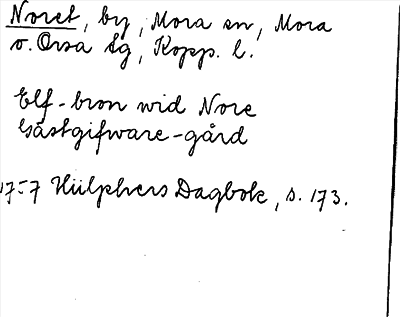 Noret, by, Mora sn, Mora
o. Orsa tg, Kopp. l.
Elf-bron wid Nore
Gästgifware-gård
1757 Hülphers Dagbok, s. 173.